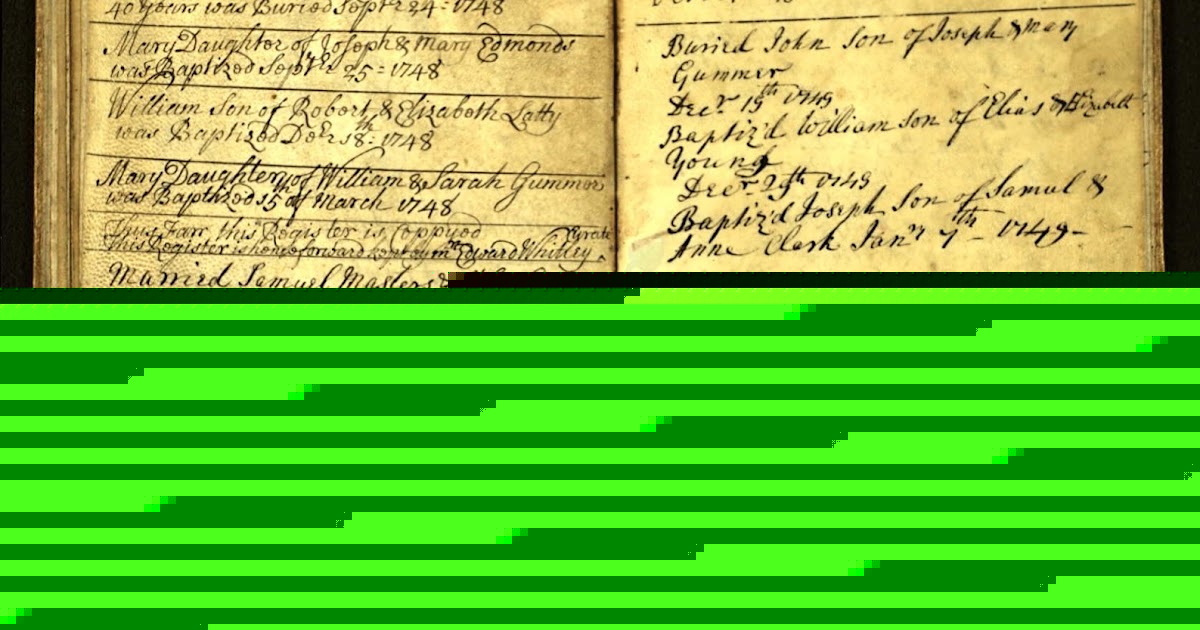 40 years was Buried Sept.r 24 = 1748
Mary Daughter of Joseph & Mary Edmonds
was Baptized Sept.r 25 = 1748
William Son of Robert & Elizabeth Latty
was Baptized Dec.r 18.th 1748
Mary Daughter of William & Sarah Gummer
was Baptized 15th of March 1748
Thus Farr this Register is coppyed
this Register is henceforward kept by mr Edward Whitley
Married Samuel Masters &
Buried John Son of Joseph & Mary
Gummer
Dec.r 15th 1749
Baptiz'd William son of Elias & Elizabeth
Young
Dec.r 29th 1749
Baptiz'd Joseph Son of Samuel &
Anne Clark Jan.ry 7th 1749-